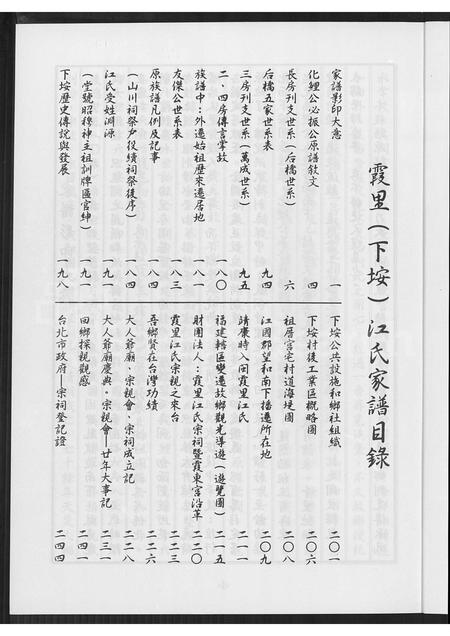 霞里（下垵）江氏家譜目錄
家譜影印大意 一
化鯉公必振公原譜敘文 四
長房刊支世系（后橋世系） 六
后橋五家世系表 九四
三房刊支世系（萬成世系） 九五
二·四房傳言掌故 一八〇
族譜中：外遷始祖歷來遷居地 一八一
友傑公世系表 一八三
原族譜凡例及記事 一八四
（山川祠祭產役續祠祭後序） 一八四
江氏受姓淵源 一九一
（堂號昭穆神主祖訓牌區官紳） 一九一
下垵歷史傳說與發展 一九八
下垵公共設施和鄉社組織 二〇一
下垵村後工業區概略圖 二〇六
祖厝宮宅村道海堘圖 二〇八
江國郡望和南下播遷所在地 二〇九
靖康時入閩霞里江氏 二一一
福建轄區變遷故鄉觀光導遊（遊覽圖） 二一五
財團法人：霞里江氏宗祠暨霞東宮沿革 二二〇
霞里江氏宗親之來台 二二三
吾鄉賢在台灣功績 二二六
大人爺廟、宗親會、宗祠成立記 二二八
大人爺廟慶典·宗親會—廿年大事記 二三一
回鄉探親觀感 二四一
台北市政府—宗祠登記證 二四四